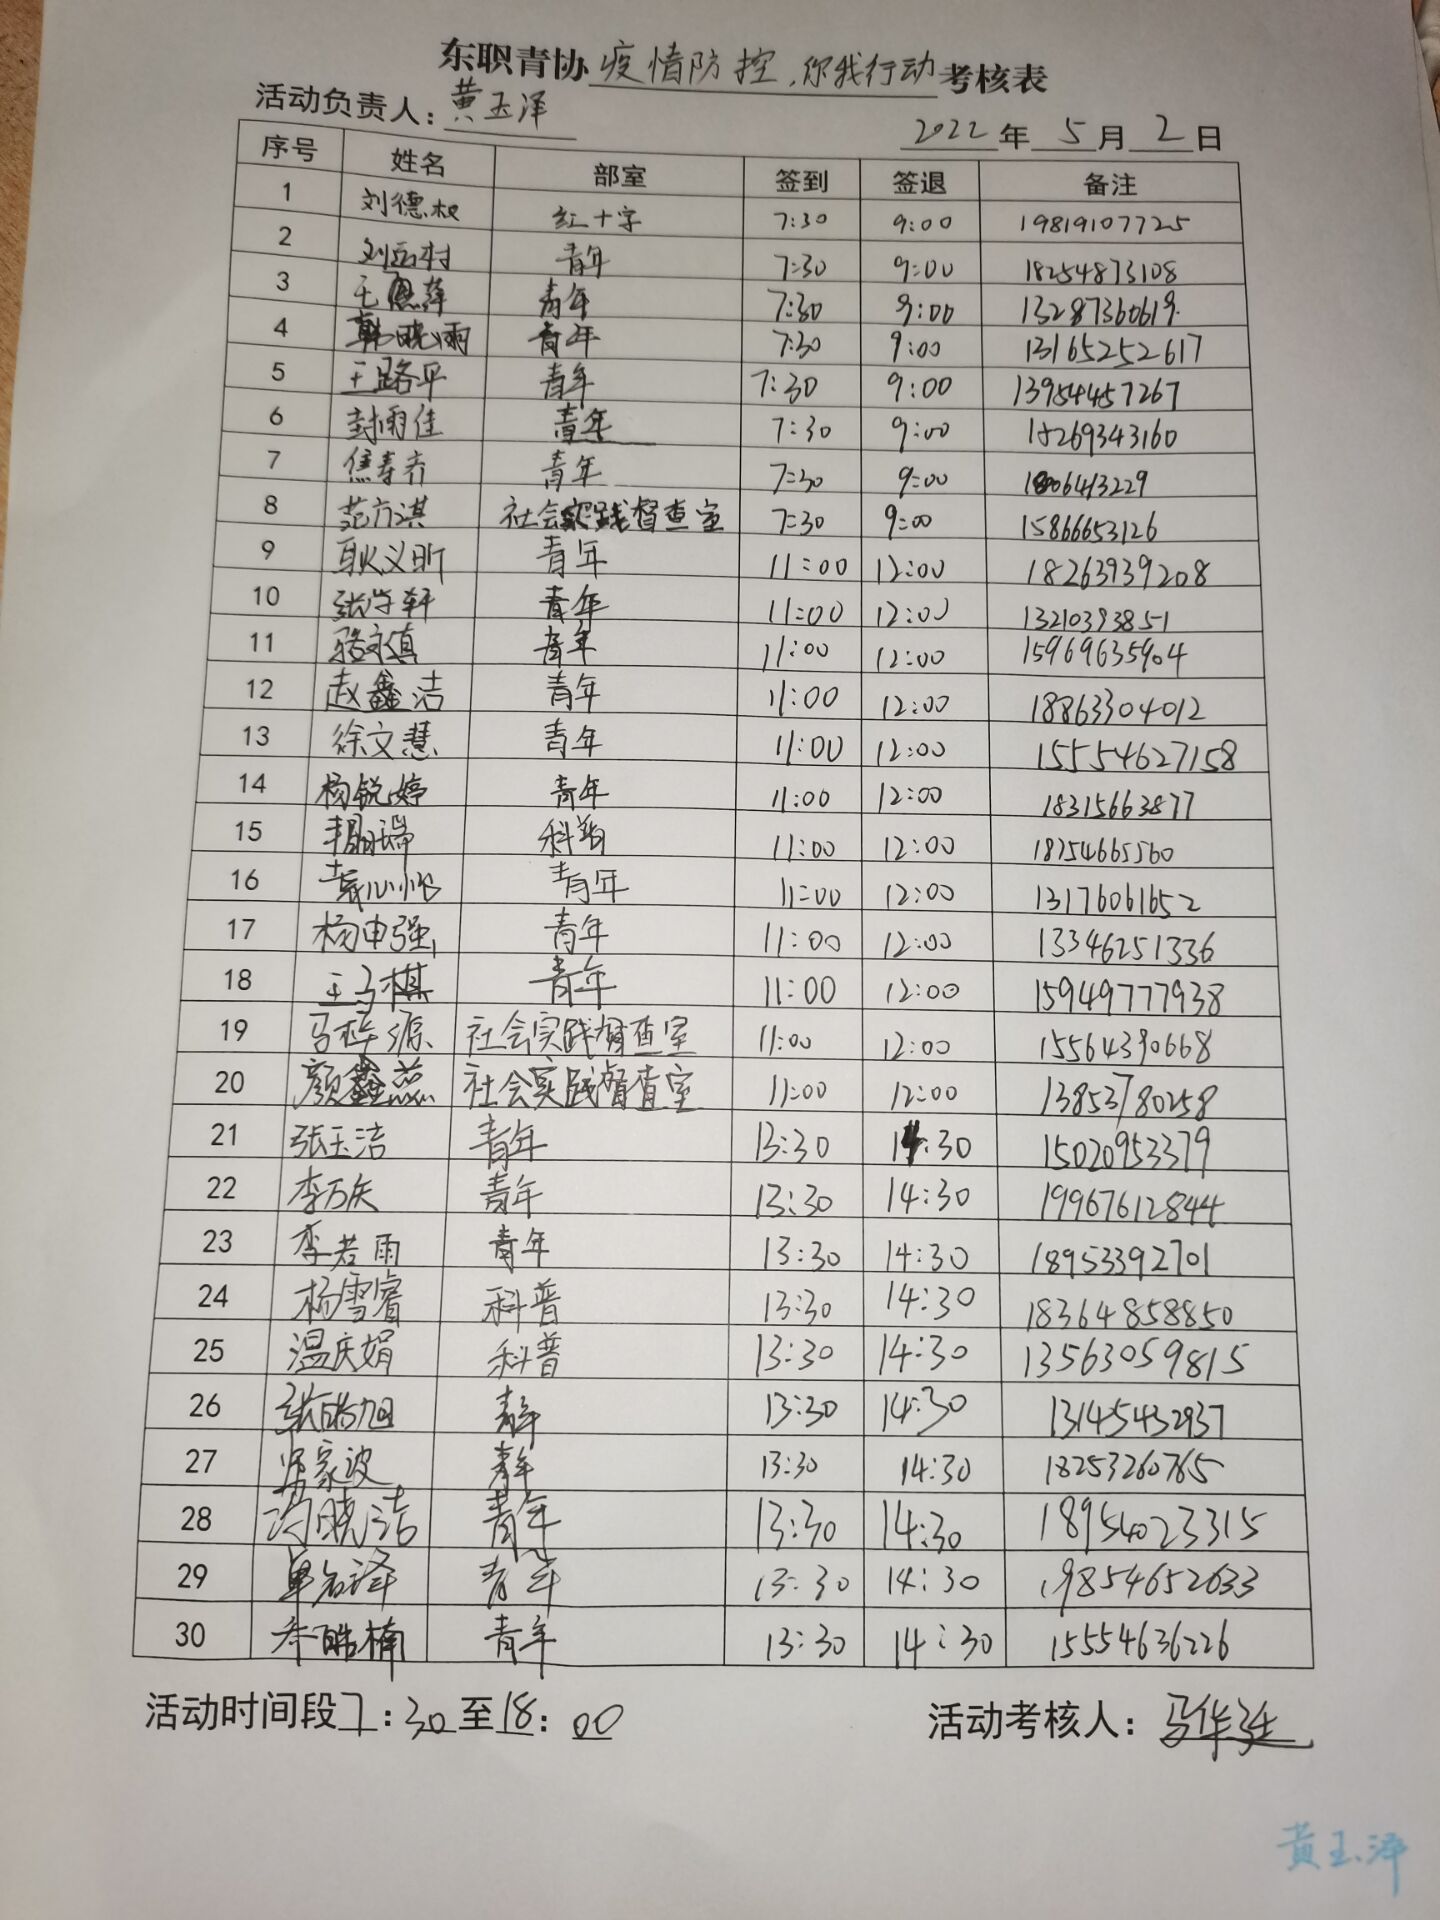 东职青协 疫情防控,你我行动 考核表
活动负责人: 黄玉泽 2022年5月2日
序号 姓名 部室 签到 签退 备注
1 刘德权 红十字 7:30 9:00 19819107725
2 青年 7:30 9:00 18254873108
3 青年 7:30 9:00 13287360619
4 韩晓雨 青年 7:30 9:00 13165252617
5 王路平 青年 7:30 9:00 13954457267
6 封雨佳 青年 7:30 9:00 18269343160
7 青年 7:30 9:00
8 范方淇 社会实践督查室 7:30 9:00 15866653126
9 耿义昕 青年 11:00 12:00 18263939208
10 青年 11:00 12:00 13210393851
11 青年 11:00 12:00 15969635904
12 赵鑫洁 青年 11:00 12:00 18863304012
13 徐文慧 青年 11:00 12:00 15554627158
14 杨锐婷 青年 11:00 12:00 18315663877
15 科普 11:00 12:00 18254665560
16 青年 11:00 12:00 13176061652
17 杨申强 青年 11:00 12:00 13346251336
18 青年 11:00 12:00 15949777938
19 社会实践督查室 11:00 12:00 15564390668
20 颜鑫蕊 社会实践督查室 11:00 12:00 13853780258
21 张玉洁 青年 13:30 14:30 15020953379
22 李万庆 青年 13:30 14:30 199676128444
23 李若雨 青年 13:30 14:30 18953392701
24 杨雪睿 科普 13:30 14:30 18364858850
25 温庆娟 科普 13:30 14:30 13563059815
26 青年 13:30 14:30 13145432937
27 青年 13:30 14:30 18253260765
28 青年 13:30 14:30 18954023315
29 单名泽 青年 13:30 14:30 19854652633
30 青年 13:30 14:30 15554636226
活动时间段7:30至18:00 活动考核人:
黄玉泽